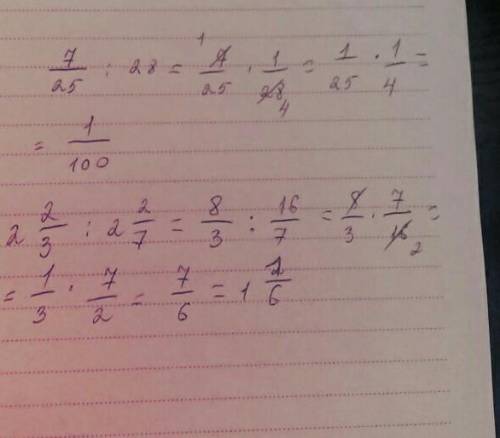 7/25 : 28 = 7/25 · 1/28 = 1/25 · 1/4 =
= 1/100
2 2/3 : 2 2/7 = 8/3 : 16/7 = 8/3 · 7/16 =
= 1/3 · 7/2 = 7/6 = 1 1/6